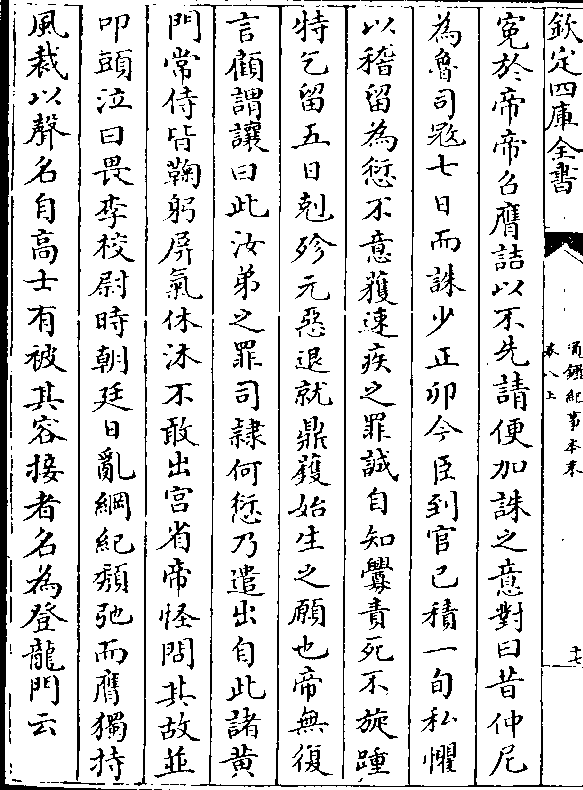 欽定四庫全書
通鑑紀事本末
卷八上
十七
寃於帝帝召膺詰以不先請便加誅之意對曰昔仲尼
為魯司寇七日而誅少正卯今臣到官已積一旬私懼
以稽留為愆不意獲速疾之罪誠自知舋責死不旋踵
特乞留五日剋殄元惡退就鼎鑊始生之願也帝無復
言顧謂讓曰此汝弟之罪司隸何愆乃遣出自此諸黄
門常侍皆鞠躬屏氣休沐不敢出宫省帝怪問其故並
叩頭泣曰畏李校尉時朝廷日亂綱紀頽弛而膺獨持
風裁以聲名自高士有被其容接者名為登龍門云